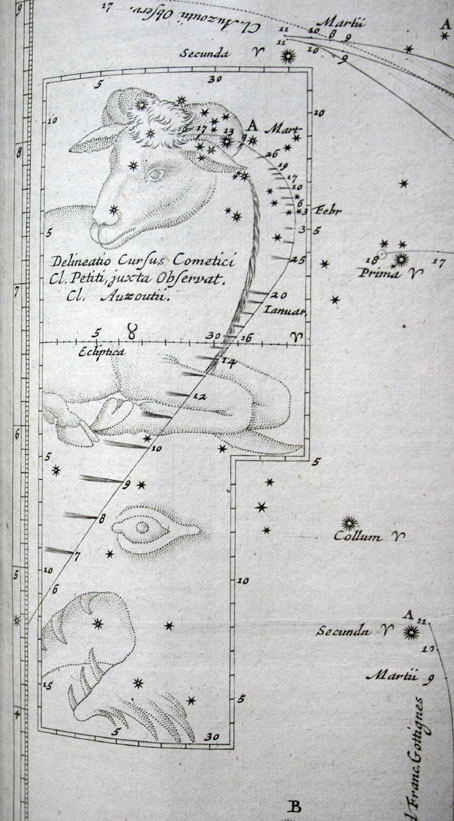 Cl. Auzoutii Observ.
17
Martii
11
10
8
9
11
10
9
A
Secunda ♈
5
30
10
17
13
A
Mart
9
26
19
17
10
6
3
Febr
3
5
25
Delineatio Cursus Cometici
Cl. Petiti, juxta Observat.
Cl. Auzoutii.
20
Ianuar.
5
♉
30
16
♈
Ecliptica
14
12
10
9
8
7
6
5
5
10
15
5
5
30
18
17
Prima ♈
Collum ♈
A
11
Secunda ♈
17
Martii 9
d Franc. Gottignes
B
9
8
7
6
5
4